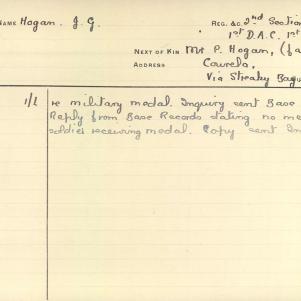 NAME Hogan. J. G.
REG. &C. 2nd Section
1st D.A.C. 1st
NEXT OF KIN Mr P. Hogan, (fa
ADDRESS Cawrels,
Via Streaky Bay
1/2 re military medal. Inquiry sent Base
Reply from Base Records stating no me
soldier receiving medal. Copy sent In